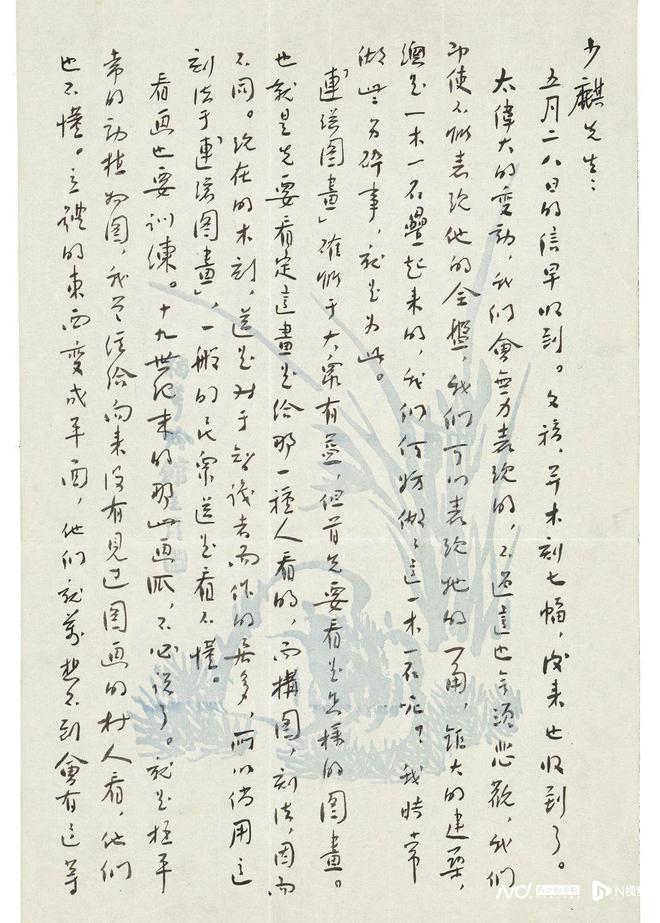 少麒先生：
五月二八日的信早收到。文稿，并木刻七幅，後来也收到了。
太偉大的变動，我们會無力表现的，不过這也無须悲觀，我们
即使不能表现他的全盤，我们可以表现牠的一角，鉅大的建築，
總是一木一石疊起来的，我们何妨做做這一木一石呢？我時常
做些零碎事，就是为此。
「連環图畫」確能于大衆有益，但首先要看是怎様的图畫。
也就是先要看定這畫是给那一種人看的，而構图，刻法，因而
不同。现在的木刻，還是对于智識者而作的居多，所以倘用這
刻法于「連環图畫」，一般的民衆還是看不懂。
看画也要训練。十九世纪末的那些画派，不必说了。就是極平
常的动植物图，我曾经给向来没有見过图画的村人看，他们
也不懂。立體的東西变成平面，他们就萬想不到會有這等
N视频